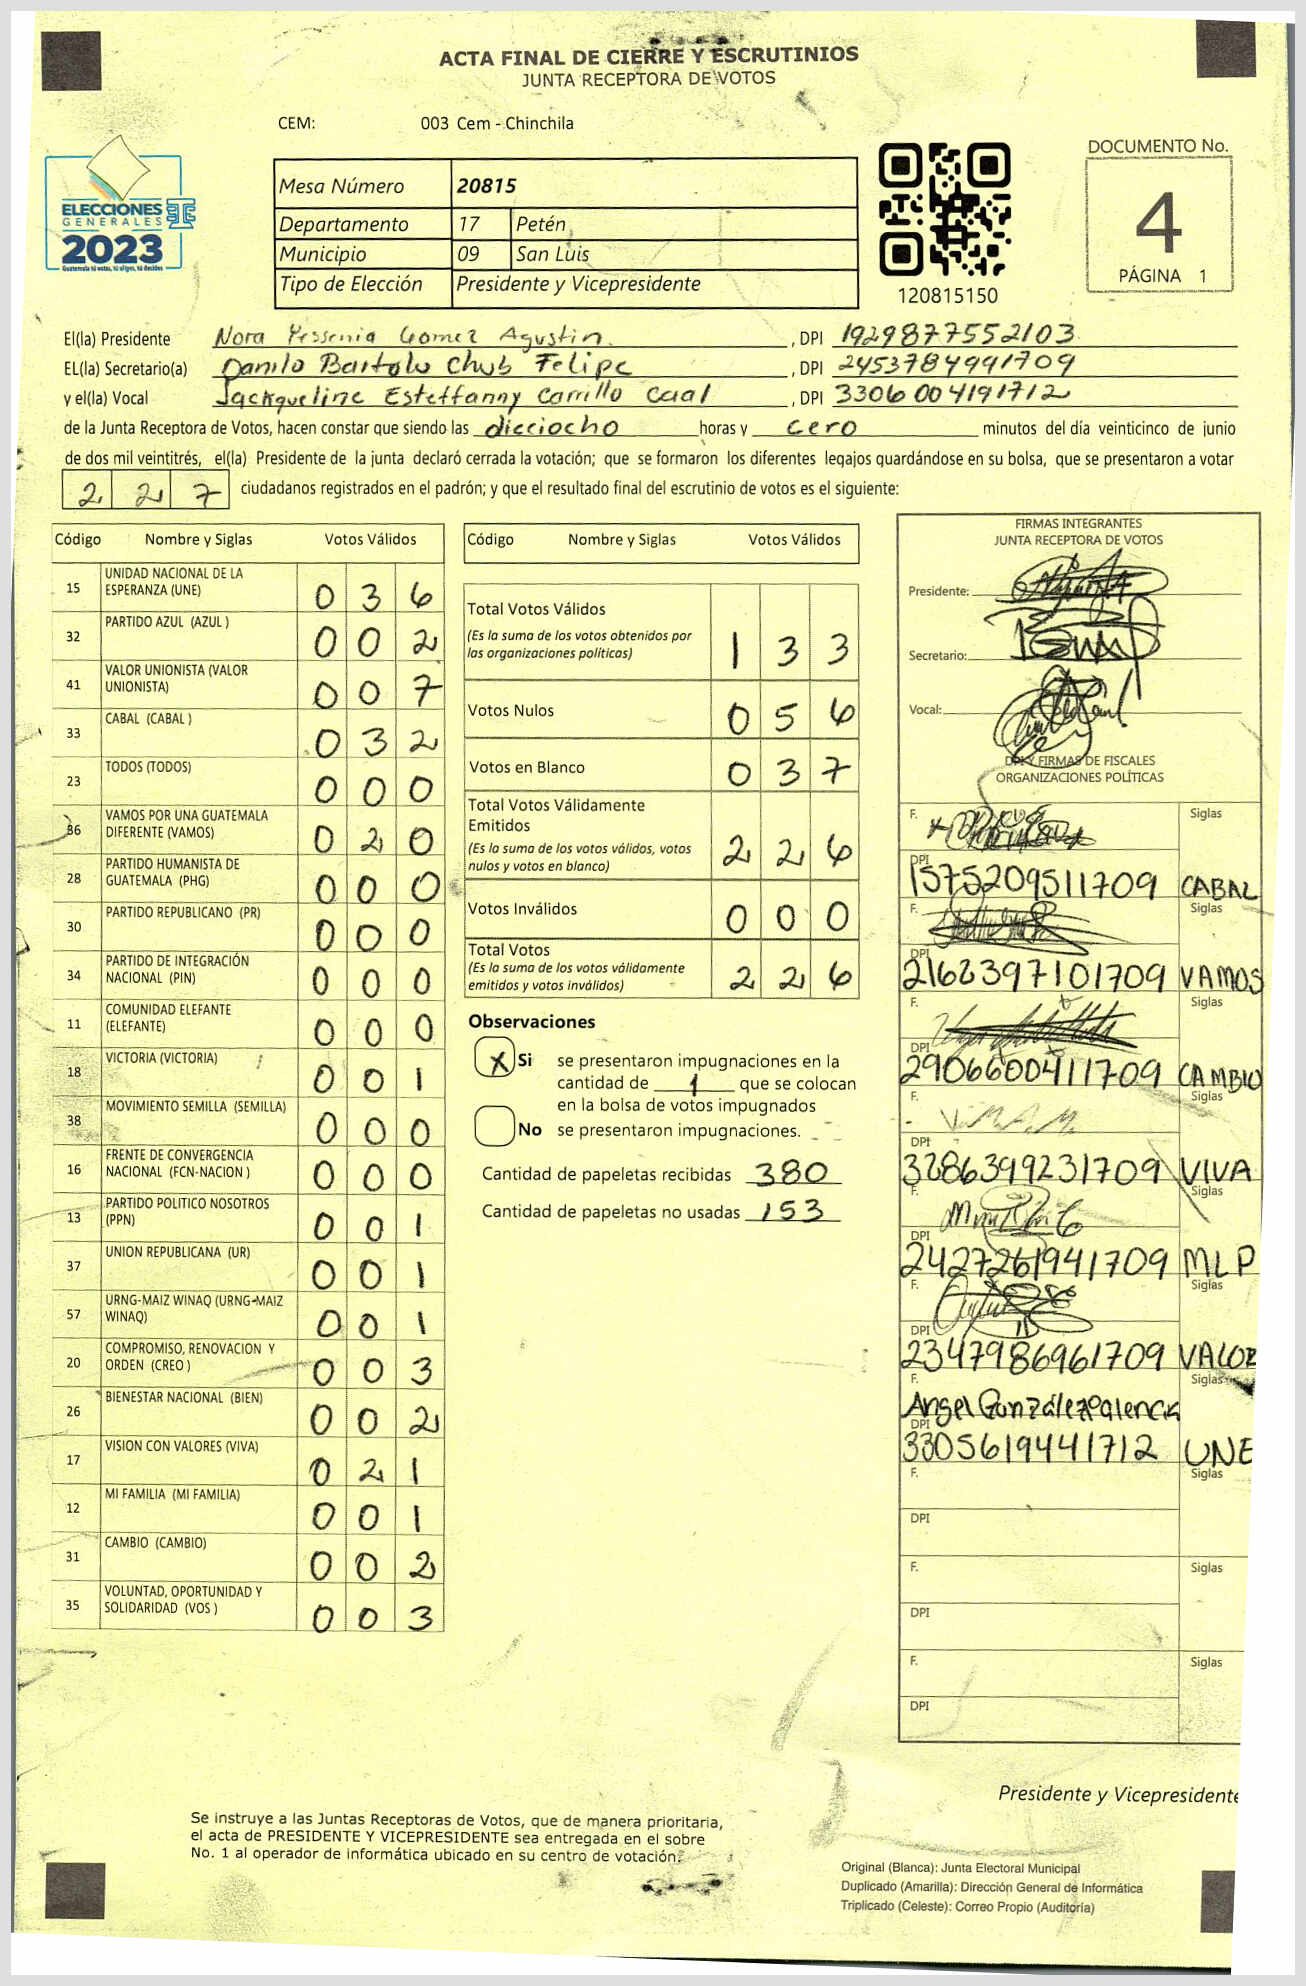 ACTA FINAL DE CIERRE Y ESCRUTINIOS
JUNTA RECEPTORA DE VOTOS
CEM: 003 Cem - Chinchila
DOCUMENTO No.
4
PÁGINA 1
ELECCIONES
GENERALES
2023
Guatemala tú votas, tú eliges, tú decides
TSE
Mesa Número 20815
Departamento 17 Petén
Municipio 09 San Luis
Tipo de Elección Presidente y Vicepresidente
120815150
El(la) Presidente Nora Yessenia Gomez Agustin , DPI 1929877552103
EL(la) Secretario(a) Danilo Bartolo Chub Felipe , DPI 2453784991709
y el(la) Vocal Jackqueline Esteffanny Carrillo Caal , DPI 3306004191712
de la Junta Receptora de Votos, hacen constar que siendo las dieciocho horas y cero minutos del día veinticinco de junio
de dos mil veintitrés, el(la) Presidente de la junta declaró cerrada la votación; que se formaron los diferentes legajos guardándose en su bolsa, que se presentaron a votar
2 2 7 ciudadanos registrados en el padrón; y que el resultado final del escrutinio de votos es el siguiente:
Código Nombre y Siglas Votos Válidos
15 UNIDAD NACIONAL DE LA ESPERANZA (UNE) 0 3 6
32 PARTIDO AZUL (AZUL ) 0 0 2
41 VALOR UNIONISTA (VALOR UNIONISTA) 0 0 7
33 CABAL (CABAL ) 0 3 2
23 TODOS (TODOS) 0 0 0
86 VAMOS POR UNA GUATEMALA DIFERENTE (VAMOS) 0 2 0
28 PARTIDO HUMANISTA DE GUATEMALA (PHG) 0 0 0
30 PARTIDO REPUBLICANO (PR) 0 0 0
34 PARTIDO DE INTEGRACIÓN NACIONAL (PIN) 0 0 0
11 COMUNIDAD ELEFANTE (ELEFANTE) 0 0 0
18 VICTORIA (VICTORIA) 0 0 1
38 MOVIMIENTO SEMILLA (SEMILLA) 0 0 0
16 FRENTE DE CONVERGENCIA NACIONAL (FCN-NACION ) 0 0 0
13 PARTIDO POLITICO NOSOTROS (PPN) 0 0 1
37 UNION REPUBLICANA (UR) 0 0 1
57 URNG-MAIZ WINAQ (URNG-MAIZ WINAQ) 0 0 1
20 COMPROMISO, RENOVACION Y ORDEN (CREO ) 0 0 3
26 BIENESTAR NACIONAL (BIEN) 0 0 2
17 VISION CON VALORES (VIVA) 0 2 1
12 MI FAMILIA (MI FAMILIA) 0 0 1
31 CAMBIO (CAMBIO) 0 0 2
35 VOLUNTAD, OPORTUNIDAD Y SOLIDARIDAD (VOS ) 0 0 3
Código Nombre y Siglas Votos Válidos
Total Votos Válidos 1 3 3
(Es la suma de los votos obtenidos por
las organizaciones políticas)
Votos Nulos 0 5 6
Votos en Blanco 0 3 7
Total Votos Válidamente
Emitidos 2 2 6
(Es la suma de los votos válidos, votos
nulos y votos en blanco)
Votos Inválidos 0 0 0
Total Votos 2 2 6
(Es la suma de los votos válidamente
emitidos y votos inválidos)
Observaciones
X Si se presentaron impugnaciones en la
cantidad de 1 que se colocan
en la bolsa de votos impugnados
No se presentaron impugnaciones.
Cantidad de papeletas recibidas 380
Cantidad de papeletas no usadas 153
FIRMAS INTEGRANTES
JUNTA RECEPTORA DE VOTOS
Presidente:
Secretario:
Vocal:
DPI Y FIRMAS DE FISCALES
ORGANIZACIONES POLÍTICAS
F. Siglas
DPI 1575209511709 CABAL
F. Siglas
DPI 2162397101709 VAMOS
F. Siglas
DPI 2906600411709 CAMBIO
F. V.M.A.M. Siglas
DPI 3286399231709 VIVA
F. Siglas
DPI 2427261941709 MLP
F. Siglas
DPI 2347986961709 VALOR
F. Angel González Palencia Siglas
DPI 3305619441712 UNE
F. Siglas
DPI
F. Siglas
DPI
F. Siglas
DPI
Presidente y Vicepresidente
Se instruye a las Juntas Receptoras de Votos, que de manera prioritaria,
el acta de PRESIDENTE Y VICEPRESIDENTE sea entregada en el sobre
No. 1 al operador de informática ubicado en su centro de votación.
Original (Blanca): Junta Electoral Municipal
Duplicado (Amarilla): Dirección General de Informática
Triplicado (Celeste): Correo Propio (Auditoría)